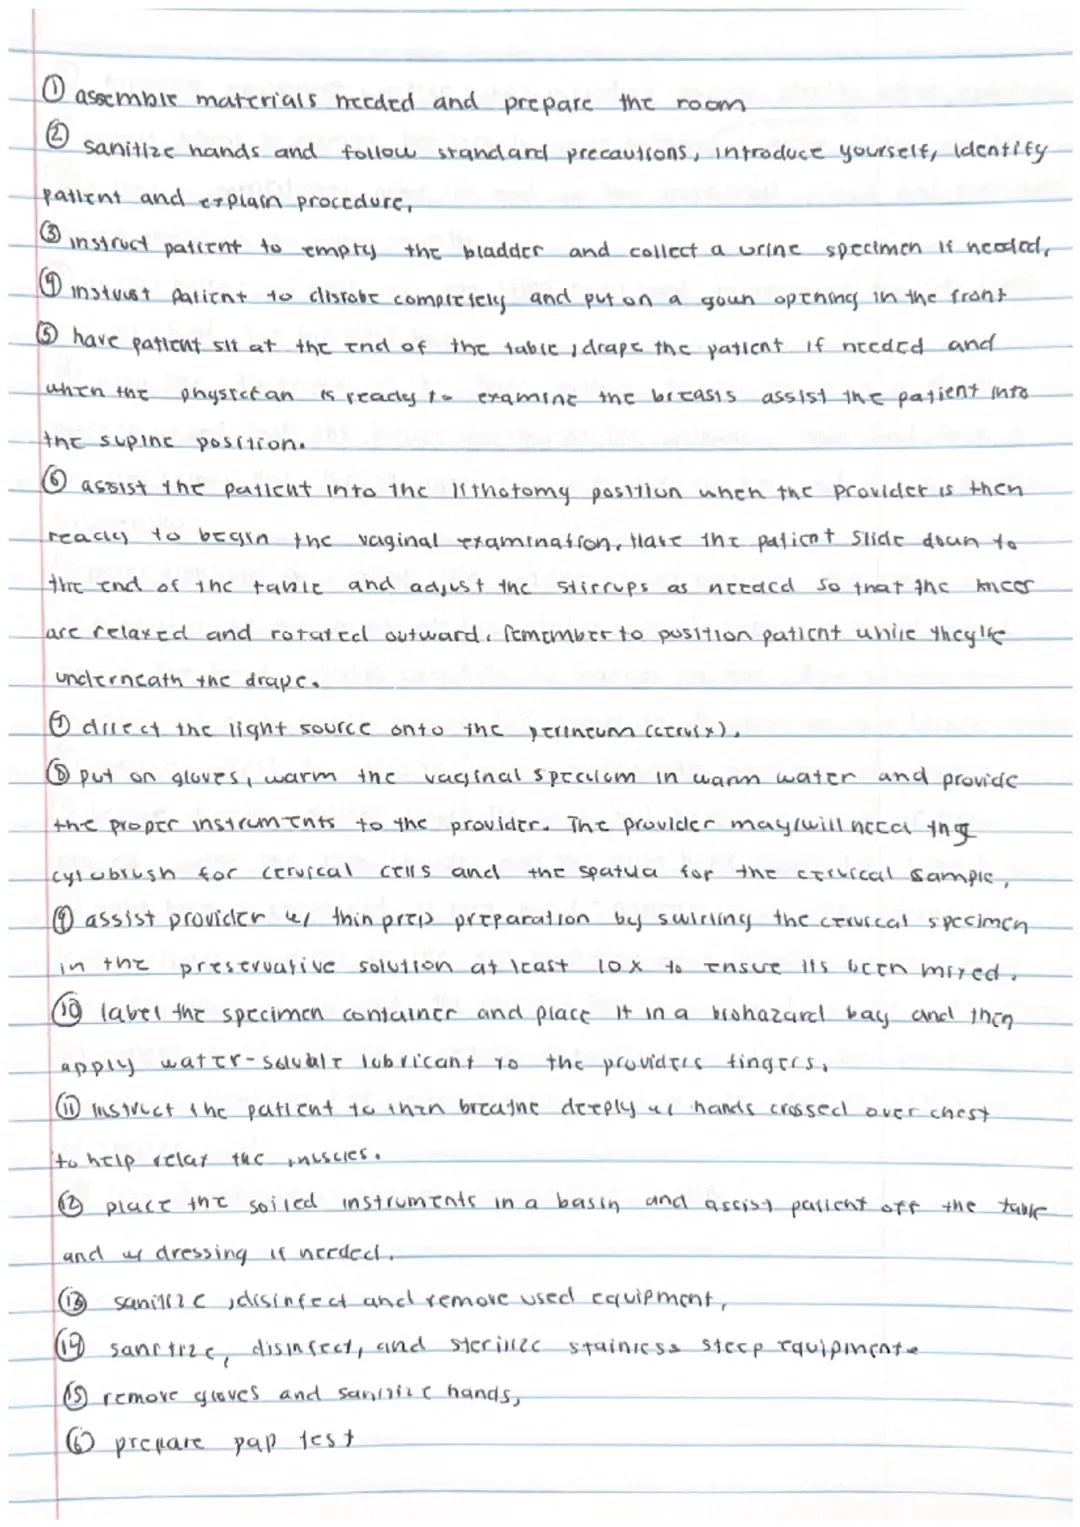 ① assemble materials needed and prepare the room
② sanitize hands and follow standard precautions, introduce yourself, identify
patient and explain procedure,
③ instruct patient to empty the bladder and collect a urine specimen if needed,
④ instruct patient to disrobe completely and put on a goun opening in the front
⑤ have patient sit at the end of the table, drape the patient if needed and
when the physician is ready to examine the breasts assist the patient into
the supine position.
⑥ assist the patient into the lithotomy position when the provider is then
ready to begin the vaginal examination, Have the patient slide down to
the end of the table and adjust the stirrups as needed so that the knees
are relaxed and rotated outward. remember to position patient while they're
underneath the drape.
⑦ direct the light source onto the perineum (cervix),
⑧ put on gloves, warm the vaginal speculum in warm water and provide
the proper instruments to the provider. The provider may/will need the
cytobrush for cervical cells and the spatua for the cervical sample,
⑨ assist provider w/ thin prep preparation by swirling the cervical specimen
in the preservative solution at least 10x to ensure its been mixed.
⑩ label the specimen container and place it in a biohazard bag and then
apply water-soluble lubricant to the providers fingers,
⑪ instruct the patient to then breathe deeply w/ hands crossed over chest
to help relax the muscles.
⑫ place the soiled instruments in a basin and assist patient off the table
and w/ dressing if needed.
⑬ sanitize, disinfect and remove used equipment,
⑭ sanitize, disinfect, and sterilize stainless steep equipment.
⑮ remove gloves and sanitize hands,
⑯ prepare pap test